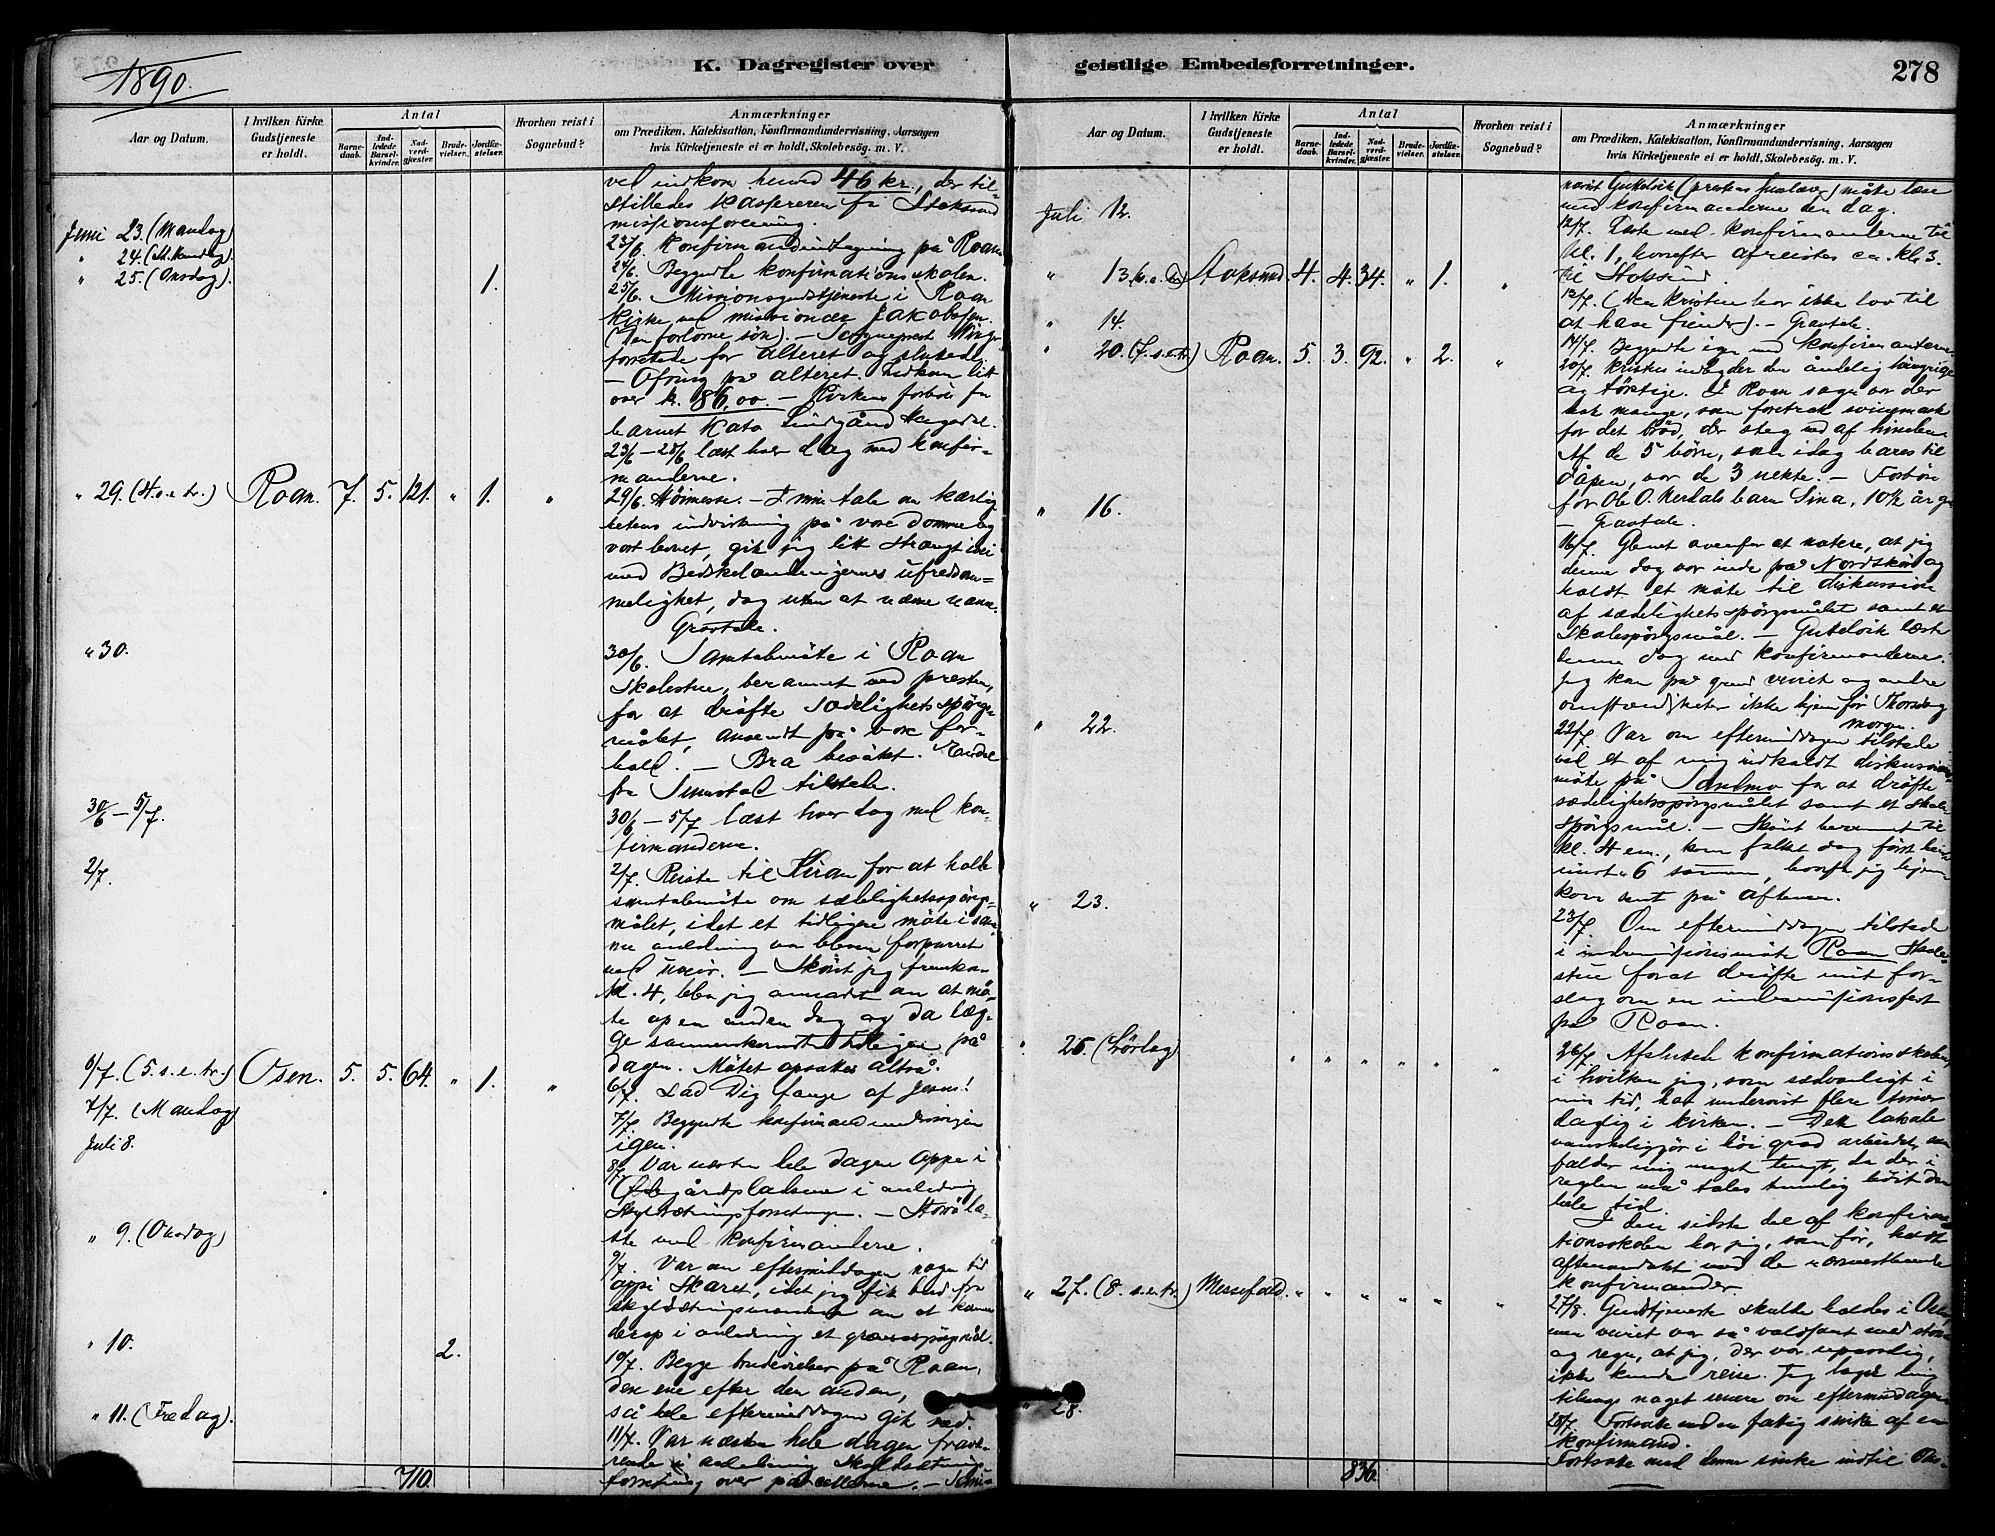 1890.
K. Dagregister over
Aar og Datum.
I hvilken Kirke Gudstjeneste er holdt.
Antal
Barnedaab.
Indledede Barselkvinder.
Nadverdgjæster.
Brudevielser.
Jordfæstelser.
Hvorhen reist i Sognebud?
Anmærkninger
om Prædiken, Katekisation, Konfirmandundervisning, Aarsagen
hvis Kirketjeneste ei er holdt, Skolebesøg. m. V.
ved indkom herved 46 kr., der til-
stilledes Kassereren for Stoksund
missionsforening.
Juni 23. (Mandag)
23/6. Konfirmandindtagning på Roan.
" 24.
24/6. Begyndte konfirmationsskolen.
" 25. (Onsdag). 1.
25/6. Missionsgudstjeneste i Roan
Kirke ved missionær Jakobsen.
(Den fortorne søn). — Sogneprest
forrettede for alteret og
— Ofring på alteret. Indkom lidt
over kr. 86,00. — Kirkens forbön for
barnet Kato
23/6 – 28/6 læst hver dag med konfir-
manderne.
" 29. (4. s. e. tr.) Roan. 7. 5. 121. " 1. "
29/6. Höimesse. — I min tale om kærlig-
hetens indvirkning på vore domme og
vort levnet, gik jeg litt strængt
med ufreddom-
melighet, dog uten at nævne navn.
Gravtale.
" 30.
30/6. Samtalemöte i Roan
Skolestue, berammet ved presten,
for at dröfte Sædelighetsspörgs-
målet, anvendt på vore for-
hold. — Bra besökt.
fra tilstede.
30/6 – 5/7.
30/6 – 5/7 læst hver dag med kon-
firmanderne.
2/7.
2/7. Reiste til Kiran for at holde
samtalemöte om sædelighetsspörgs-
målet, idet et tidligere möte i sam-
me anledning var bleven forpurret
ved uveir. — Skönt jeg fremkom
kl. 4, blev jeg anmodt om at mö-
te op en anden dag og da læg-
ge sammenkomsten tidligere på
dagen. Mötet opsattes altså.
6/7. (5. s. e. tr.) Osen. 5. 5. 64. " 1. "
6/7. Lad Dig fange af Jesus!
7/7. (Mandag)
7/7. Begyndte konfirmandundervisningen
igen.
Juli 8.
8/7. Var næsten hele dagen oppe i
gårdpladsene i anledning
Skyldsætningsforretningen. —
ste med konfirmanderne.
" 9. (Onsdag)
9/7. Var om eftermiddagen nogen tid
oppi Skaret, idet jeg fik bud fra
skyldsætningsmændene om at komme
derop i anledning et grænsespörgsmål.
" 10. 2.
10/7. Begge brudevielser på Roan,
den ene efter den anden,
så hele eftermiddagen gik med.
" 11. (Fredag).
11/7. Var næsten hele dagen fravæ-
rende i anledning Skyldsætnings-
forretning over parcellerne. —
710.
geistlige Embedsforretninger.
278
Aar og Datum.
I hvilken Kirke Gudstjeneste er holdt.
Antal
Barnedaab.
Indledede Barselkvinder.
Nadverdgjæster.
Brudevielser.
Jordfæstelser.
Hvorhen reist i Sognebud?
Anmærkninger
om Prædiken, Katekisation, Konfirmandundervisning, Aarsagen
hvis Kirketjeneste ei er holdt, Skolebesøg. m. V.
Gutelvik (prestens huslærer) måtte læse
med konfirmanderne den dag.
Juli 12.
12/7. Læste med konfirmanderne til
kl. 1, hvorefter afreistes ca. kl. 3.
til Stoksund.
" 13. (6. s. e. tr.) Stoksund. 4. 4. 34. " 1. "
13/7. (Den kristne har ikke lov til
at have fiender). — Gravtale.
" 14.
14/7. Begyndte igen med konfirmanderne.
" 20. (7. s. e. tr.) Roan. 5. 3. 92. " 2. "
20/7. Kristus indbyder den åndelig hungrige
og törstige. I Roan sogn var der
nok mange, som foretrak svinemask
for det bröd, der steg ned af himlen.
Af de 5 börn, som idag bares til
dåpen, var de 3 uekte. — Forbön
for Ole O. Nerdals barn Sina, 10½ år gl.
— Gravtale.
" 16.
16/7. Glemt ovenfor at notere, at jeg
denne dag var inde på Nordskör og
holdt et möte til diskussion
af sædelighetsspörgsmålet samt et
Skolespörgsmål. — Gutelvik læste
denne dag med konfirmanderne.
Jeg kom på grund veiret og andre
omstændigheter ikke hjem för Thorsdag
morgen.
" 22.
22/7. Var om eftermiddagen tilstede
ved et af mig indkaldt diskussions-
möte på Sandmo for at dröfte
sædelighetsspörgsmålet samt et skole-
spörgsmål. — Skönt berammet til
kl. 4 em., kom folket dog först
imot 6 sammen, hvorfor jeg hjem-
kom sent på aftenen.
" 23.
23/7. Om eftermiddagen tilstede
i indremissionsmöte Roan Skole-
stue for at dröfte mit for-
slag om en indremissionsfest
på Roan.
" 26. (Lördag) " " " " " "
26/7. Afsluttede konfirmationsskolen,
i hvilken jeg, som sædvanligt i
min tid, har undervist flere timer
daglig i kirken. — Dette lokale
vanskeliggjör i höi grad arbeidet, som
falder mig meget tungt, da der i
reglen må tales temmelig höit den
hele tid.
I den sidste del af konfirma-
tionsskolen har jeg, som för, holdt
aftenandakt med de nærmestboende
konfirmander.
" 27. (8. s. e. tr.) Messefald. " " " " " "
27/8. Gudstjeneste skulde holdes i Osen,
men veiret var så voldsomt med storm
og regn, at jeg, der var upasselig,
ikke kunde reise. Jeg
noget senere om eftermiddagen
" 28.
28/7. Fortsatte
konfirmand.
Fortsatte med denne indtil
836.